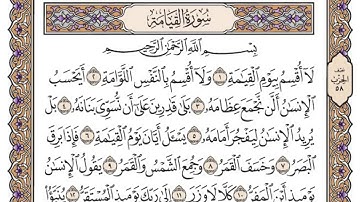 سُورَةُ القِيَامَةِ
بِسْمِ اللَّهِ الرَّحْمَٰنِ الرَّحِيمِ
لَا أُقْسِمُ بِيَوْمِ الْقِيَامَةِ ١ وَلَا أُقْسِمُ بِالنَّفْسِ اللَّوَّامَةِ ٢ أَيَحْسَبُ
الْإِنسَانُ أَلَّن نَّجْمَعَ عِظَامَهُ ٣ بَلَىٰ قَادِرِينَ عَلَىٰ أَن نُّسَوِّيَ بَنَانَهُ ٤ بَلْ
يُرِيدُ الْإِنسَانُ لِيَفْجُرَ أَمَامَهُ ٥ يَسْأَلُ أَيَّانَ يَوْمُ الْقِيَامَةِ ٦ فَإِذَا بَرِقَ
الْبَصَرُ ٧ وَخَسَفَ الْقَمَرُ ٨ وَجُمِعَ الشَّمْسُ وَالْقَمَرُ ٩ يَقُولُ الْإِنسَانُ
يَوْمَئِذٍ أَيْنَ الْمَفَرُّ ١٠ كَلَّا لَا وَزَرَ ١١ إِلَىٰ رَبِّكَ يَوْمَئِذٍ الْمُسْتَقَرُّ ١٢ يُنَبَّأُ
الحزب
٥٨